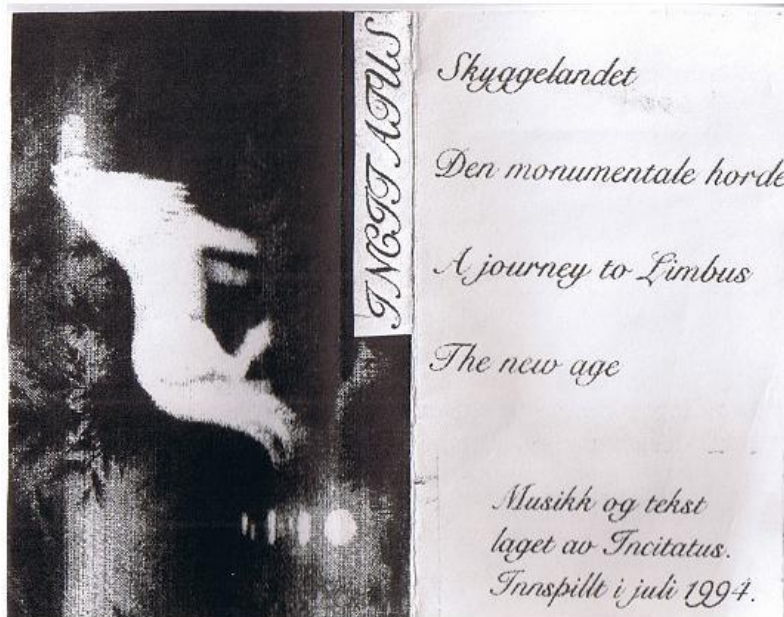 INCITATUS
Skyggelandet
Den monumentale horde
A journey to Limbus
The new age
Musikk og tekst
laget av Incitatus.
Innspillt i juli 1994.